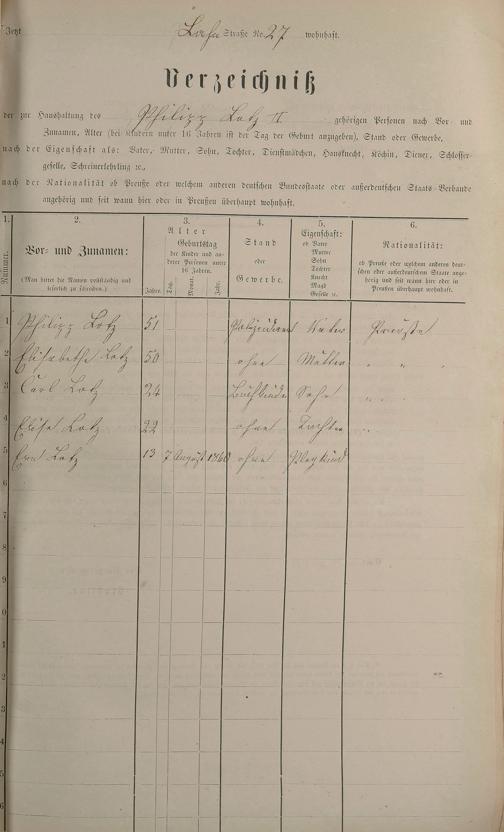 Jetzt Lahn Straße No. 27 wohnhaft.
Verzeichniß
der zur Haushaltung des Philipp Lotz II gehörigen Personen nach Vor- und
Zunamen, Alter (bei Kindern unter 16 Jahren ist der Tag der Geburt anzugeben), Stand oder Gewerbe,
nach der Eigenschaft als: Vater, Mutter, Sohn, Tochter, Dienstmädchen, Hausknecht, Köchin, Diener, Schlosser-
geselle, Schreinerlehrling ꝛc.,
nach der Nationalität ob Preuße oder welchem anderen deutschen Bundesstaate oder außerdeutschen Staats-Verbande
angehörig und seit wann hier oder in Preußen überhaupt wohnhaft.
1. 2. 3. 4. 5. 6.
Nummer.
Vor- und Zunamen:
(Man bittet die Namen vollständig und
leserlich zu schreiben.)
Alter
Geburtstag
der Kinder und an-
derer Personen unter
16 Jahren.
Jahre. Tag. Monat. Jahr.
Stand
oder
Gewerbe.
Eigenschaft:
ob Vater
Mutter
Sohn
Tochter
Knecht
Magd
Geselle ꝛc.
Nationalität:
ob Preuße oder welchem anderen deut-
schen oder außerdeutschen Staate ange-
hörig und seit wann hier oder in
Preußen überhaupt wohnhaft.
1 Philipp Lotz 51 Polizeidiener Vater Preuße
2 Elisabethe Lotz 50 ohne Mutter " " "
3 Carl Lotz 24 Sohn " "
4 Elise Lotz 22 ohne Tochter "
5 Lotz 13 7 August 1860 ohne Pflegkind
6
7
8
9
0
1
2
3
4
5
6